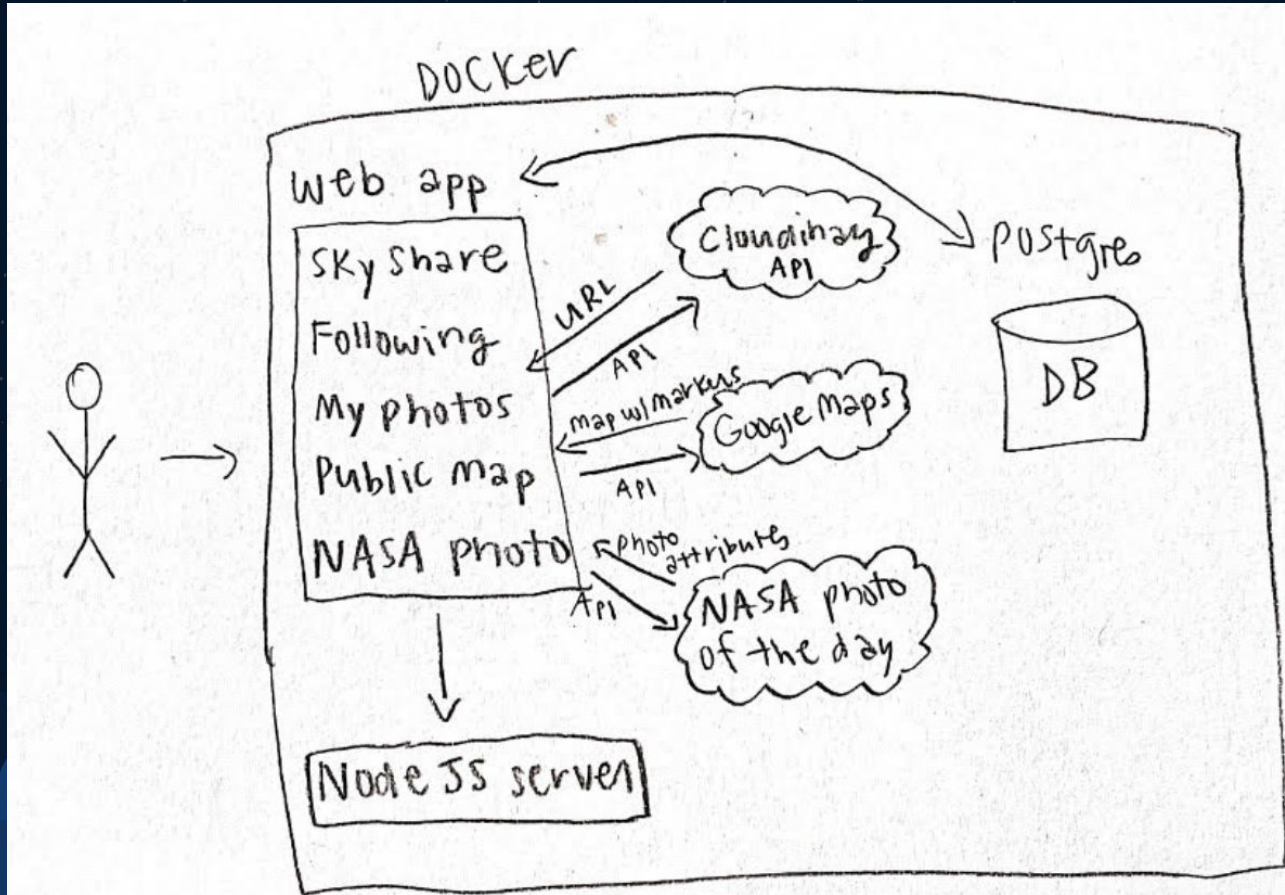 DOCKER
web app
Sky Share
Following
My photos
Public Map
NASA photo
URL
API
Cloudinay
API
map w/ markers
API
Google Maps
photo
attributes
API
NASA photo
of the day
Postgres
DB
Node JS server